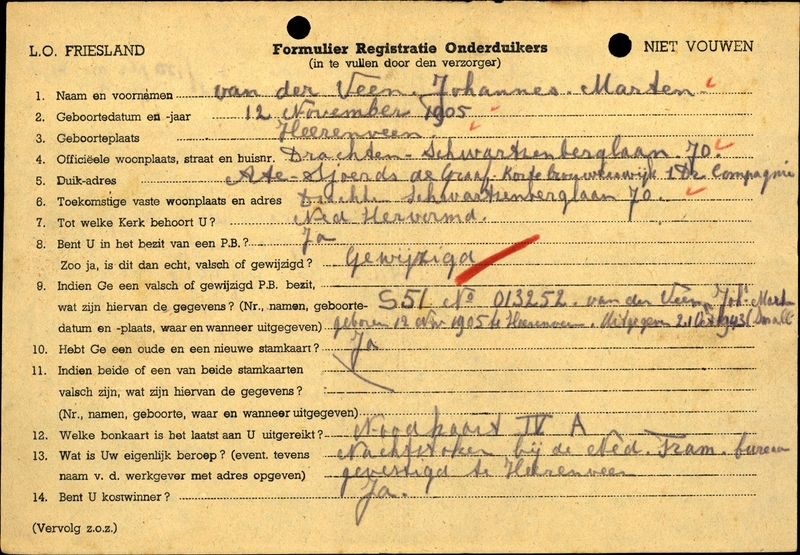 L.O. FRIESLAND
Formulier Registratie Onderduikers
(in te vullen door den verzorger)
NIET VOUWEN
1. Naam en voornamen van der Veen. Johannes. Marten
2. Geboortedatum en -jaar 12 November 1905
3. Geboorteplaats Heerenveen.
4. Officiëele woonplaats, straat en huisnr. Drachten - Schwartzenberglaan 70.
5. Duik-adres Ate-Sjoerds de Graaf - Korte 1 De Compagnie
6. Toekomstige vaste woonplaats en adres Schwartzenberglaan 70.
7. Tot welke Kerk behoort U? Ned Hervormd.
8. Bent U in het bezit van een P.B.? Ja
Zoo ja, is dit dan echt, valsch of gewijzigd? Gewijzigd
9. Indien Ge een valsch of gewijzigd P.B. bezit,
wat zijn hiervan de gegevens? (Nr., namen, geboorte- S51 No 013252. van der Veen Joh. Mart
datum en -plaats, waar en wanneer uitgegeven) geboren 12 Nov 1905 te Heerenveen. Uitgegeven 21 1943
10. Hebt Ge een oude en een nieuwe stamkaart? Ja
11. Indien beide of een van beide stamkaarten
valsch zijn, wat zijn hiervan de gegevens?
(Nr., namen, geboorte, waar en wanneer uitgegeven)
12. Welke bonkaart is het laatst aan U uitgereikt? Noodkaart IV A
13. Wat is Uw eigenlijk beroep? (event. tevens Nachtstoker bij de Ned. Tram. bureau
naam v. d. werkgever met adres opgeven) gevestigd te Heerenveen
14. Bent U kostwinner? Ja.
(Vervolg z.o.z.)